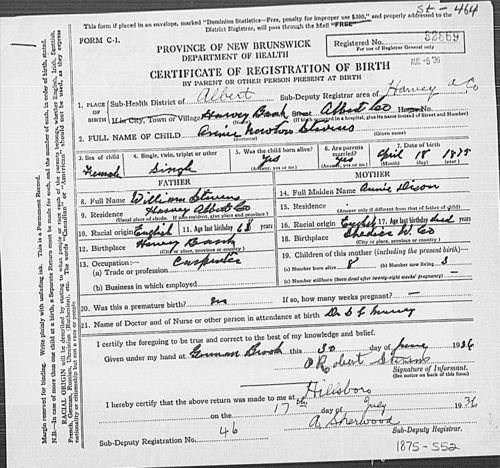 St - 464
This form if placed in an envelope, marked "Dominion Statistics—Free, penalty for improper use $300," and properly addressed to the
District Registrar, will pass through the Mail "FREE"
FORM C-1.
PROVINCE OF NEW BRUNSWICK
DEPARTMENT OF HEALTH
Registered No. 32869
For use of Registrar General only
AUG -5 '36
CERTIFICATE OF REGISTRATION OF BIRTH
BY PARENT OR OTHER PERSON PRESENT AT BIRTH
1. PLACE OF BIRTH
Sub-Health District of Albert Sub-Deputy Registrar area of Harvey A Co
If in City, Town or Village Harvey Bank Street Albert Co House No.
(If in a hospital, give its name instead of Street and Number)
2. FULL NAME OF CHILD Stevens
(Given name)
3. Sex of child Female
4. Single, twin, triplet or other Single
5. Was the child born alive? Yes
(Answer, yes or no)
6. Are parents married? Yes
(Answer, yes or no)
7. Date of birth April 18 1875
(Month) (day) (year)
FATHER
8. Full Name William Stevens
9. Residence Harvey Albert Co
(Usual place of abode. If non-resident, give place and province)
10. Racial origin English 11. Age last birthday 68 years
12. Birthplace Harvey Bank
(City or place, province or country)
13. Occupation:—
(a) Trade or profession Carpenter
(b) Business in which employed
MOTHER
14. Full Maiden Name Annie Dixon
15. Residence
(Answer only if different from that of father of child)
16. Racial origin English 17. Age last birthday dead years
18. Birthplace Shediac W. Co
(City or place, province or country)
19. Children of this mother (including the present birth)—
(a) Number born alive 8 (b) Number now living 3
(c) Number stillborn (born dead after twenty-eight weeks' pregnancy) —
20. Was this a premature birth? no If so, how many weeks pregnant? —
21. Name of Doctor and of Nurse or other person in attendance at birth Dr S C Murray
I certify the foregoing to be true and correct to the best of my knowledge and belief.
Given under my hand at German Brook this 30 day of June 1936
Robert Stevens
Signature of Informant.
(See notice on back of this form)
I hereby certify that the above return was made to me at Hillsboro
on the 17th day of July 1936
A. Sherwood
Sub-Deputy Registrar.
Sub-Deputy Registration No. 46
1875-552
Margin reserved for binding. Write plainly with unfading ink. This is a Permanent Record.
N.B.—In case of more than one child at a birth, a Separate Return must be made for each, and the number of each, in order of birth, stated.